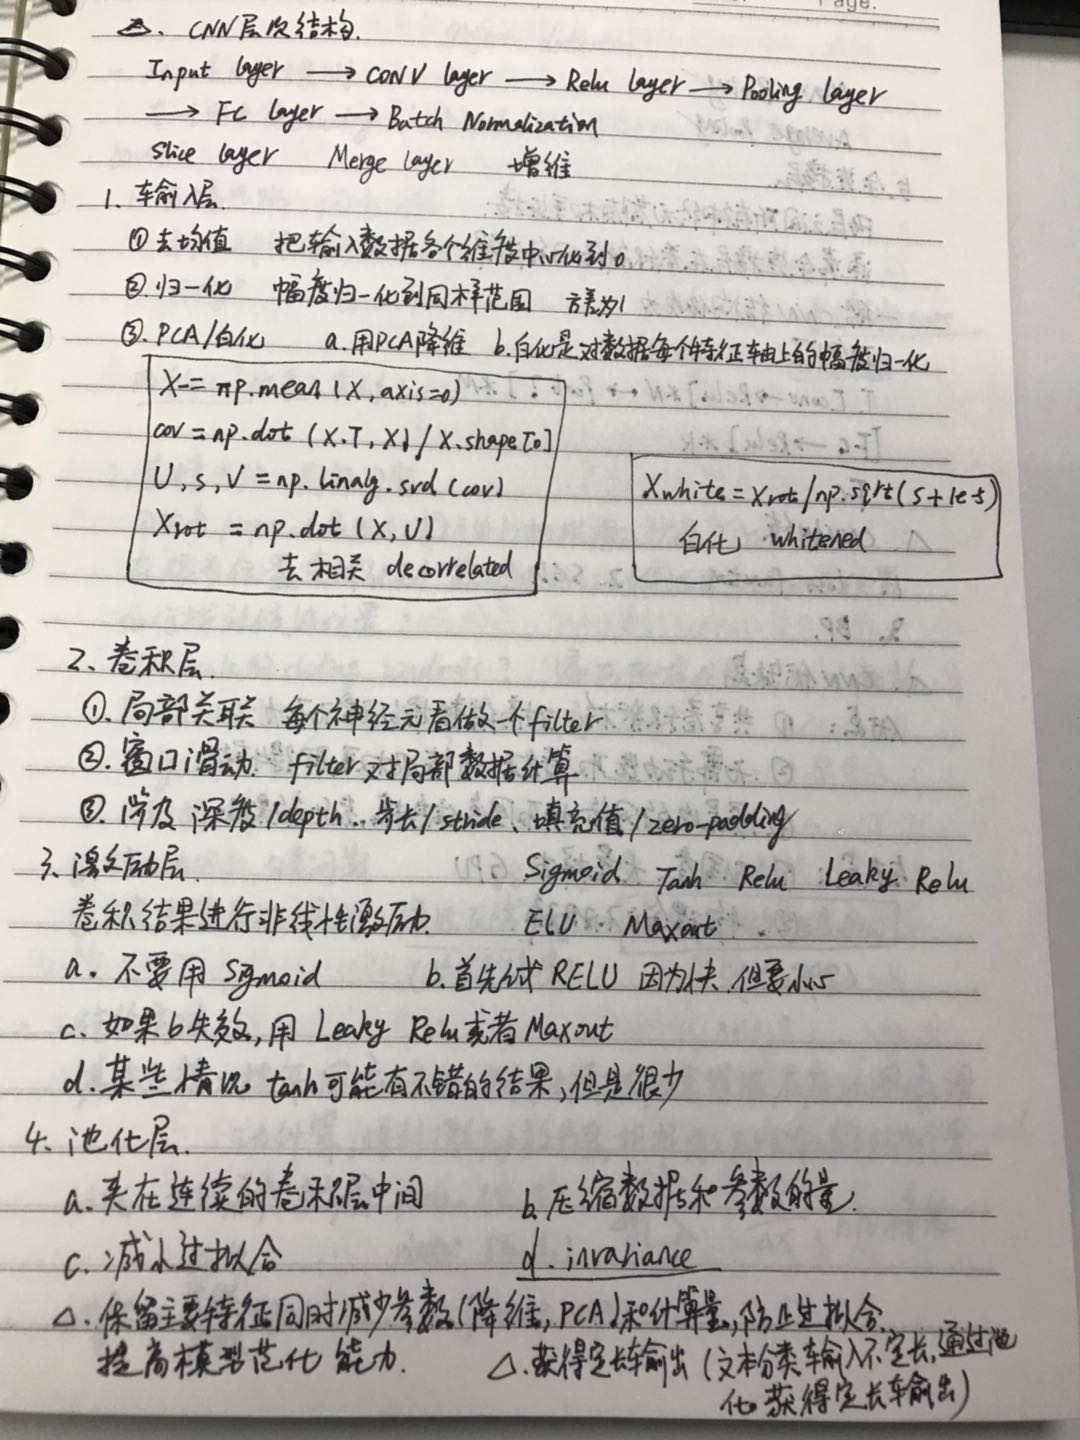 Page.
△. CNN层次结构.
Input layer → CONV layer → Relu layer → Pooling layer
→ FC layer → Batch Normalization
Slice layer Merge layer 增维
1. 输入层
① 去均值 把输入数据各个维度中心化到0
② 归一化 幅度归一化到同样范围 方差为1
③. PCA/白化 a. 用PCA降维 b. 白化是对数据每个特征轴上的幅度归一化
X-= np.mean (X, axis=0)
cov = np.dot (X.T, X) / X.shape[0]
U, s, V = np.linalg.svd (cov)
Xrot = np.dot (X, U)
去相关 decorrelated
Xwhite = Xrot/np.sqrt(s+1e-5)
白化 whitened
2. 卷积层.
①. 局部关联 每个神经元看做一个filter
②. 窗口滑动. filter对局部数据计算
③. 涉及 深度/depth、步长/stride、填充值/zero-padding
3. 激励层. Sigmoid Tanh Relu Leaky Relu
卷积结果进行非线性激励. ELU Maxout
a. 不要用 Sigmoid b. 首先试 RELU 因为快, 但要小心
c. 如果b失效, 用 Leaky Relu或者Maxout
d. 某些情况 tanh可能有不错的结果, 但是很少
4. 池化层.
a. 夹在连续的卷积层中间 b. 压缩数据和参数的量.
c. 减小过拟合 d. invariance
△. 保留主要特征同时减少参数(降维, PCA)和计算量, 防止过拟合.
提高模型范化能力. △. 获得定长输出 (文本分类输入不定长, 通过池
化获得定长输出)